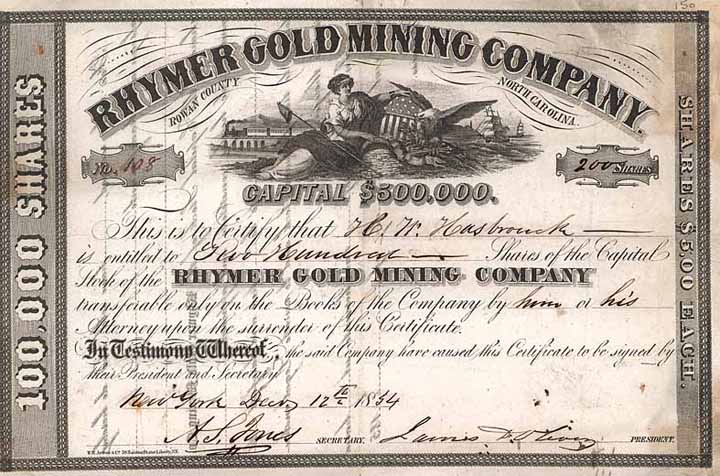 150
RHYMER GOLD MINING COMPANY.
ROWAN COUNTY NORTH CAROLINA.
100,000 SHARES
SHARES $5,00 EACH.
No. 108
200 SHARES
CAPITAL $500,000.
This is to Certify that H. W. Hasbrouck
is entitled to Two Hundred Shares of the Capital
Stock of the RHYMER GOLD MINING COMPANY
transferable only on the Books of the Company by him or his
Attorney upon the surrender of this Certificate.
In Testimony Whereof, the said Company have caused this Certificate to be signed by
their President and Secretary.
New York Decr 12th 1854
A. S. Jones SECRETARY. James PRESIDENT.